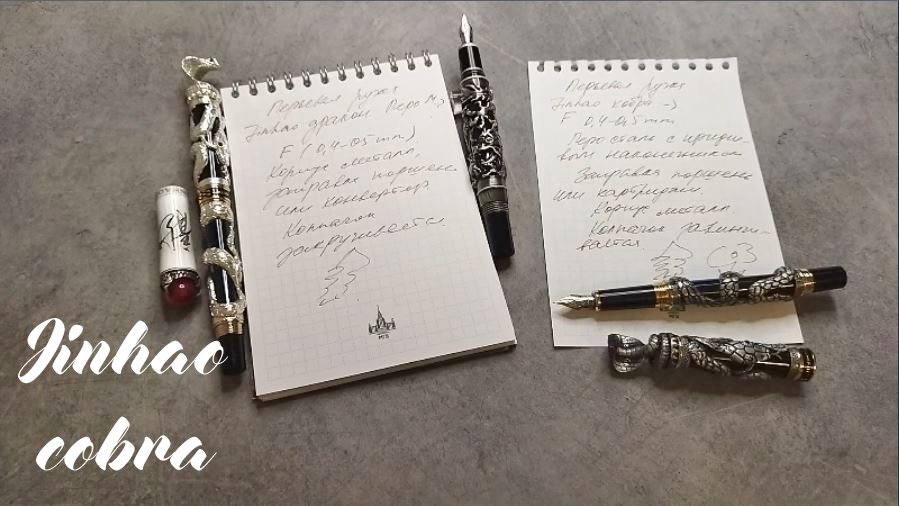 Перьевая ручка
Jinhao дракон Перо №5
F (0,4-0,5 mm)
Корпус металл,
Заправка поршень
или конвертор
Колпачок
закручивается.
МГУ
Перьевая ручка
Jinhao кобра →
F 0,4-0,5 mm
Перо сталь с ириди-
вым наконечником
Заправка поршень
или картриджи.
Корпус металл.
Колпачок завинчи-
вается.
Jinhao
cobra